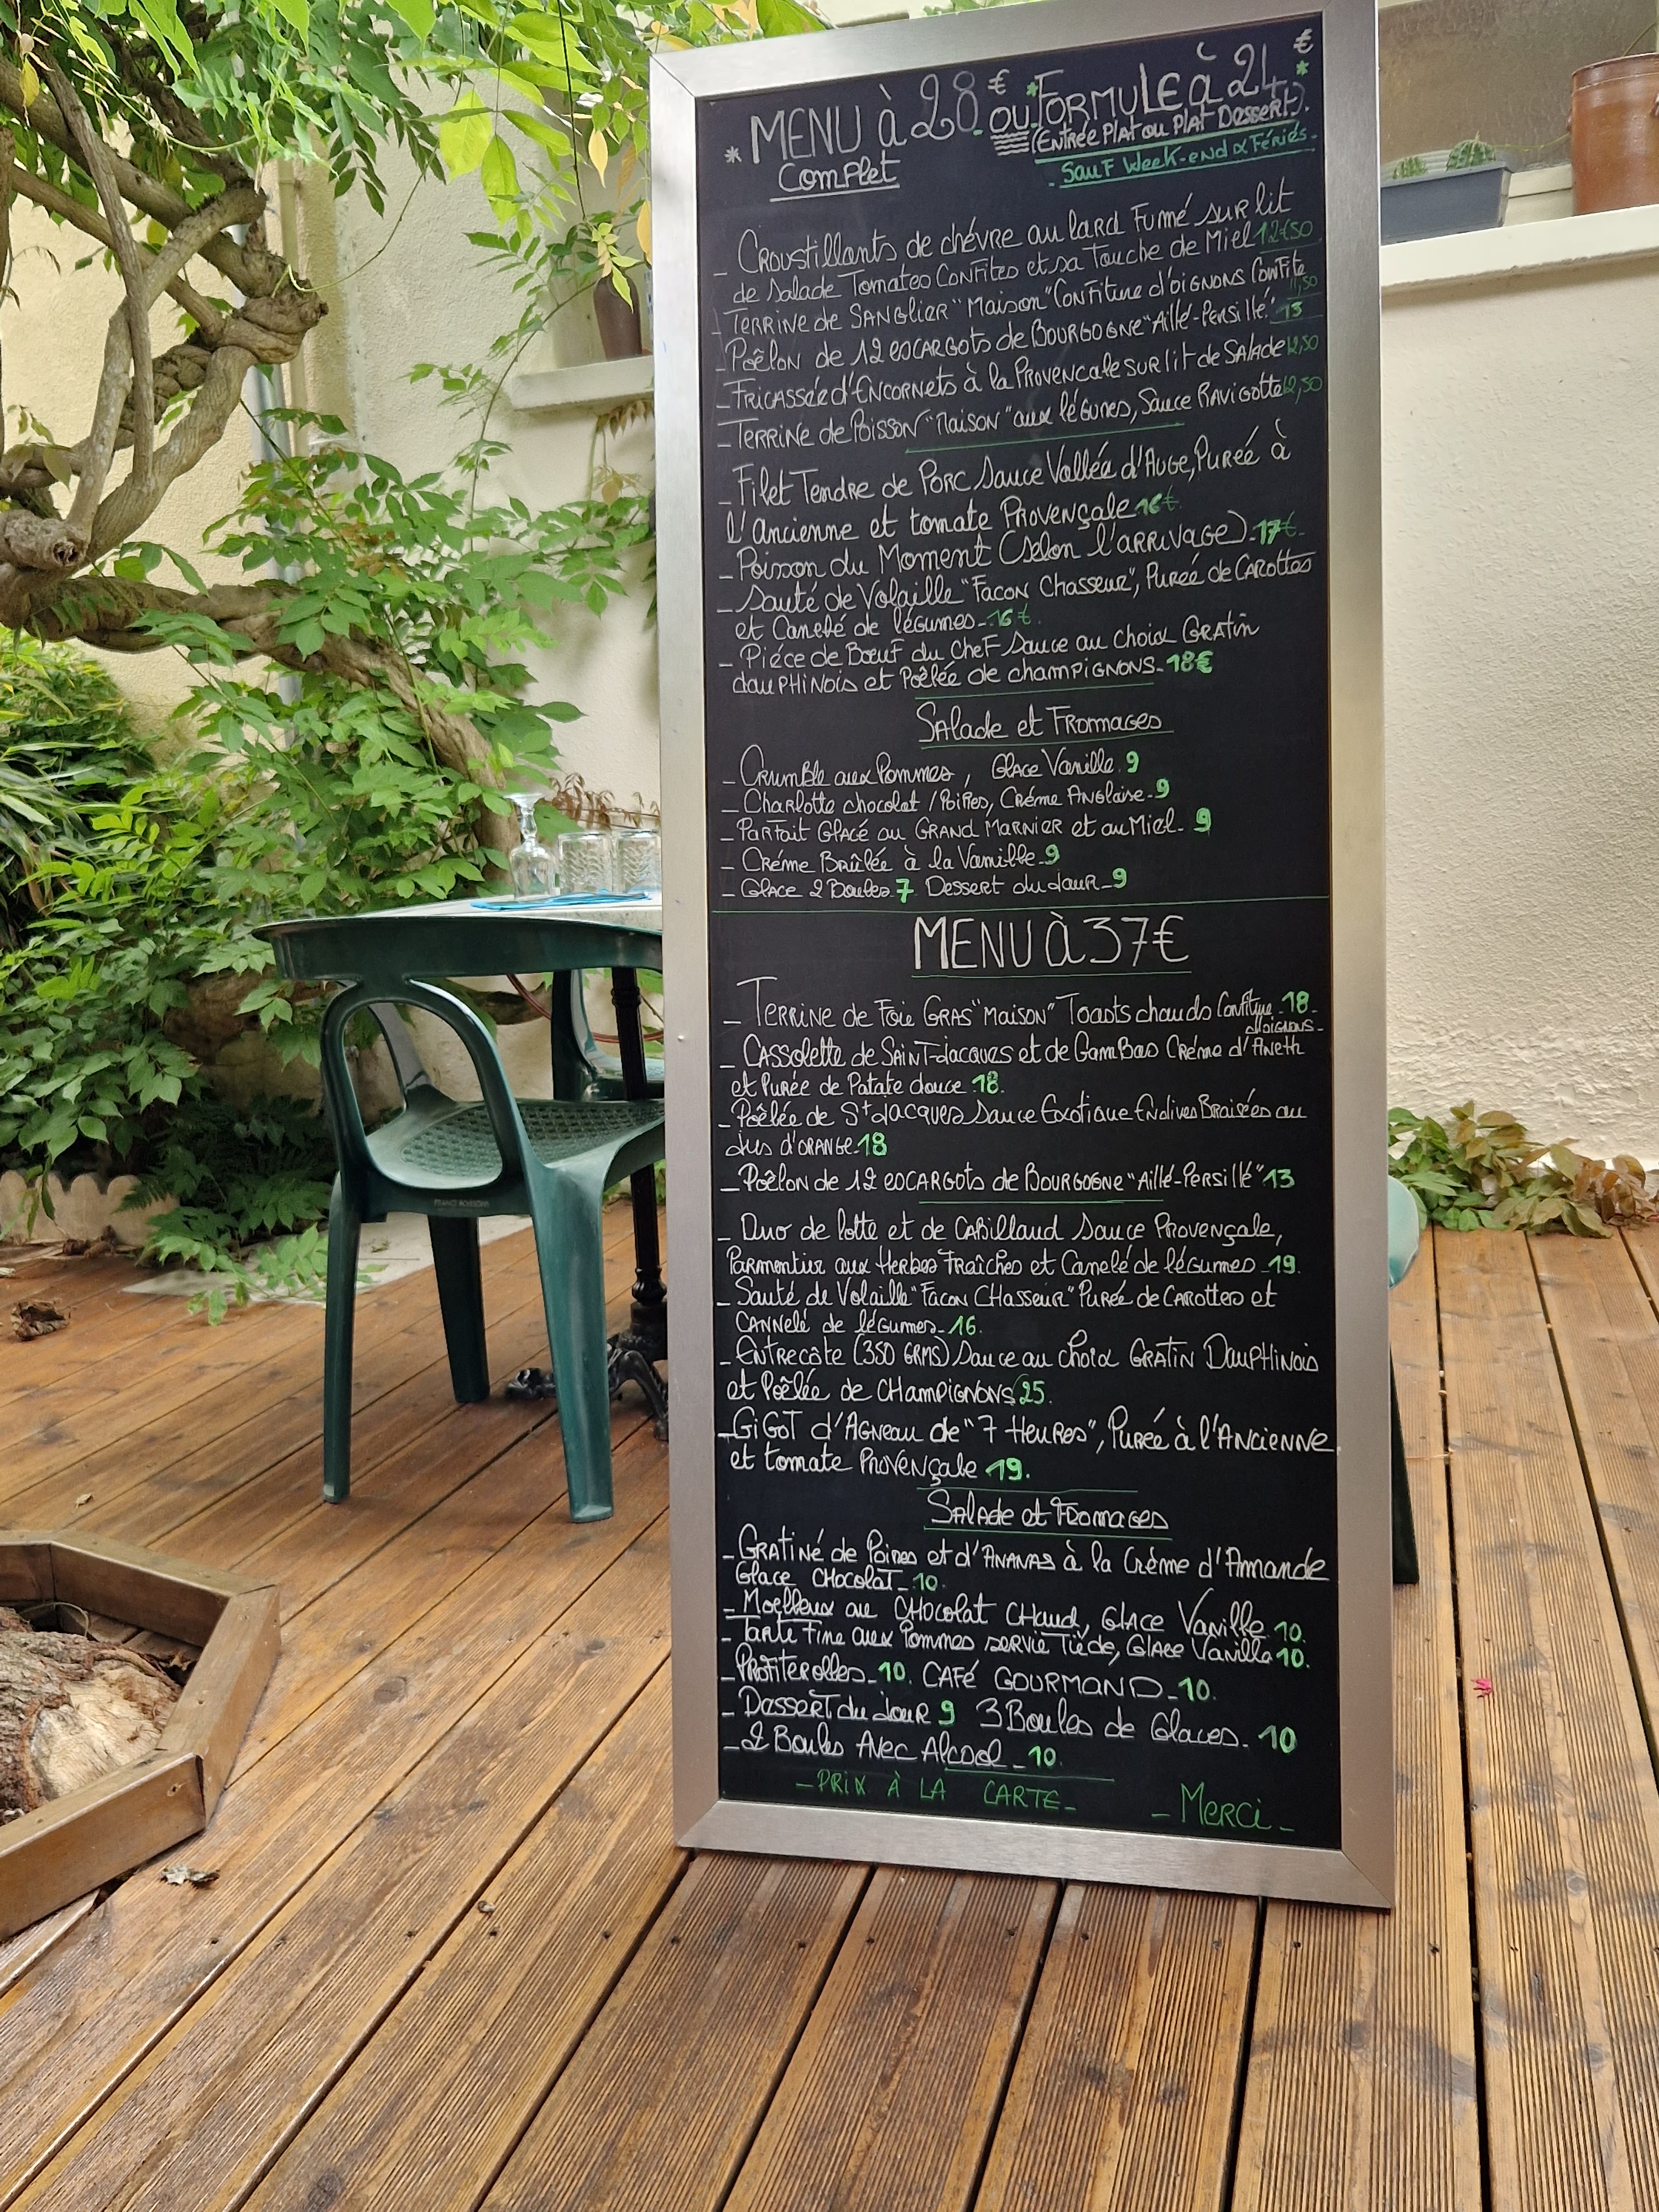 * MENU à 28€ OU * FORMULE à 24€ *
Complet
(Entrée Plat ou Plat Dessert).
- Sauf Week-end & Fériés -
_ Croustillants de chévre au lard Fumé sur lit
de Salade Tomates Confites et sa Touche de Miel 12€50
_ Terrine de Sanglier "Maison" Confiture d'oignons Confite 11,50
_ Poêlon de 12 escargots de Bourgogne "Aillé-Persillé". 13
_ Fricassée d'Encornets à la Provencale sur lit de Salade 12,50
_ Terrine de Poisson "Maison" aux légumes, Sauce Ravigotte 12,50
_ Filet Tendre de Porc Sauce Vallée d'Auge, Purée à
l'Ancienne et tomate Provençale 16€
_ Poisson du Moment (selon l'arrivage) - 17€ -
_ Sauté de Volaille "Facon Chasseur", Purée de Carottes
et Canelé de légumes - 16€.
_ Piéce de Bœuf du Chef Sauce au Choix Gratin
dauphinois et Poêlée de champignons - 18€
Salade et Fromages
_ Crumble aux Pommes, Glace Vanille. 9
_ Charlotte chocolat / Poires, Créme Anglaise - 9
_ Parfait Glacé au Grand Marnier et au Miel - 9
_ Créme Brûlée à la Vanille - 9
_ Glace 2 Boules 7 Dessert du Jour - 9
MENU à 37€
_ Terrine de Foie Gras "Maison" Toasts chauds Confiture - 18 -
d'oignons -
_ Cassolette de Saint-Jacques et de Gambas Créme d'Aneth
et Purée de Patate douce 18.
_ Poêlée de St Jacques Sauce Exotique Endives Braisées au
Jus d'orange - 18
_ Poêlon de 12 escargots de Bourgogne "Aillé-Persillé" 13
_ Duo de lotte et de Cabillaud Sauce Provençale,
Parmentier aux Herbes Fraîches et Canelé de légumes - 19.
_ Sauté de Volaille "Facon Chasseur" Purée de Carottes et
Cannelé de légumes - 16.
_ Entrecôte (350 grms) Sauce au Choix Gratin Dauphinois
et Poêlée de Champignons 25.
_ Gigot d'Agneau de "7 Heures", Purée à l'Ancienne
et tomate Provençale 19.
Salade et Fromages
_ Gratiné de Poires et d'Ananas à la Crème d'Amande
Glace Chocolat - 10.
_ Moelleux au Chocolat Chaud, Glace Vanille 10.
_ Tarte Fine aux Pommes servie Tiède, Glace Vanille 10.
_ Profiterolles - 10. Café Gourmand - 10.
_ Dessert du Jour 9 3 Boules de Glaces - 10
_ 2 Boules Avec Alcool - 10.
- PRIX À LA CARTE - - Merci -